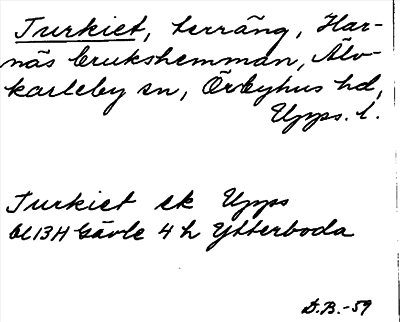 Turkiet, terräng, Har-
näs brukshemman, Älv-
karleby sn, Örbyhus hd,
Upps. l.
Turkiet ek Upps
13H Gävle 4 h Ytterboda
D.B.-59